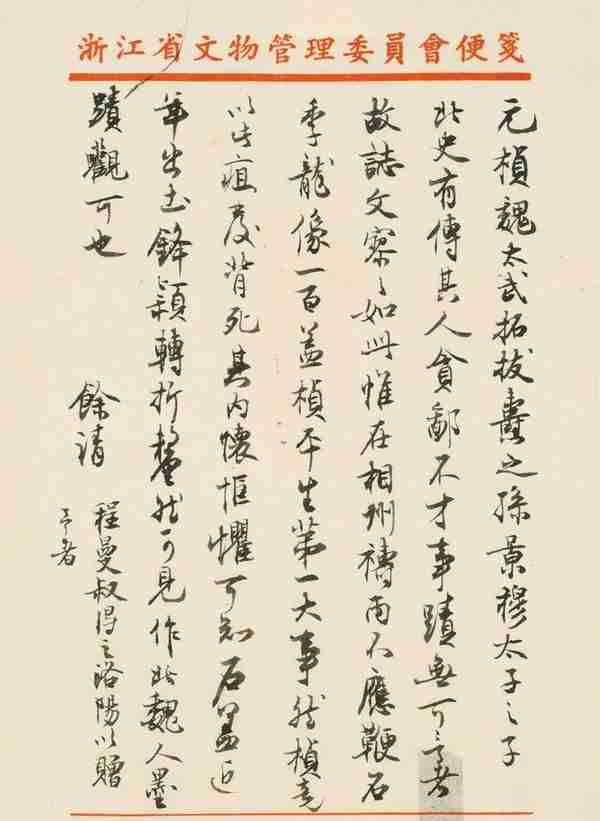 浙江省文物管理委員會便箋
元楨魏太武拓拔燾之孫景穆太子之子
北史有傳其人貪鄙不才事蹟無可言者
故誌文寥〻如此惟在相州禱雨不應鞭石
季龍像一百蓋楨平生第一大事然楨竟
以此疽發背死其内懷恇懼可知石蓋近
年出土鋒穎轉折釐然可見作北魏人墨
蹟觀可也
餘清
程曼叔得之洛陽以贈
予者